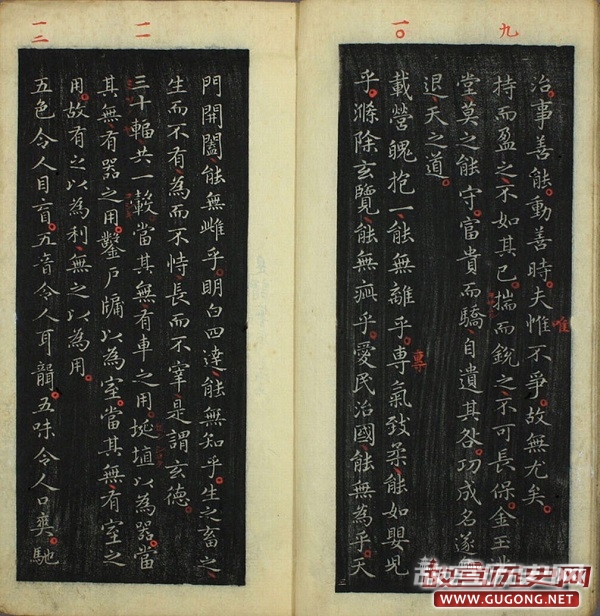 九
治事善能動善時夫惟不爭故無尤矣
唯
持而盈之不如其已揣而銳之不可長保金玉
堂莫之能守富貴而驕自遺其咎功成名遂
退天之道
一〇
載營魄抱一能無離乎專氣致柔能如嬰兒
專
乎滌除玄覽能無疵乎愛民治國能無為乎天
門開闔能無雌乎明白四達能無知乎生之畜之
生而不有為而不恃長而不宰是謂玄德
一一
三十輻共一轂當其無有車之用埏埴以為器當
其無有器之用鑿戶牖以為室當其無有室之
用故有之以為利無之以為用
一二
五色令人目盲五音令人耳聾五味令人口爽馳
故宫历史网
WWW.GUGONG.NET